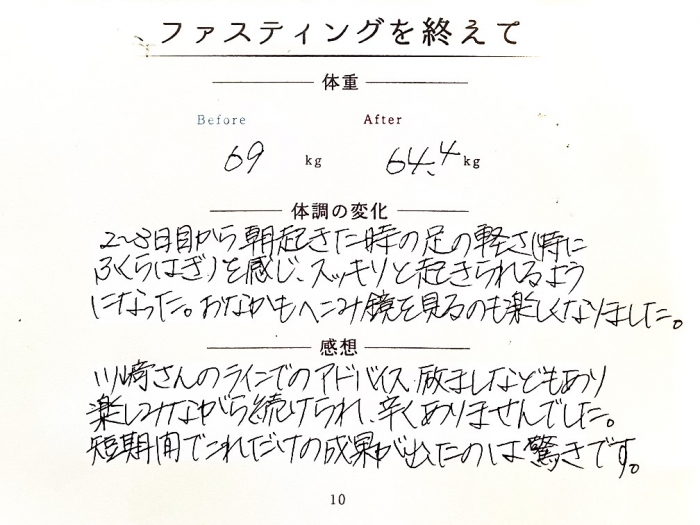 ファスティングを終えて
体重
Before After
69 kg 64.4 kg
体調の変化
2~3日目から朝起きた時の足の軽さ(特に
ふくらはぎ)を感じ、スッキリと起きられるよう
になった。おなかもへこみ鏡を見るのも楽しくなりました。
感想
川崎さんのラインでのアドバイス、励ましなどもあり
楽しみながら続けられ、辛くありませんでした。
短期間でこれだけの成果が出たのは驚きです。
10